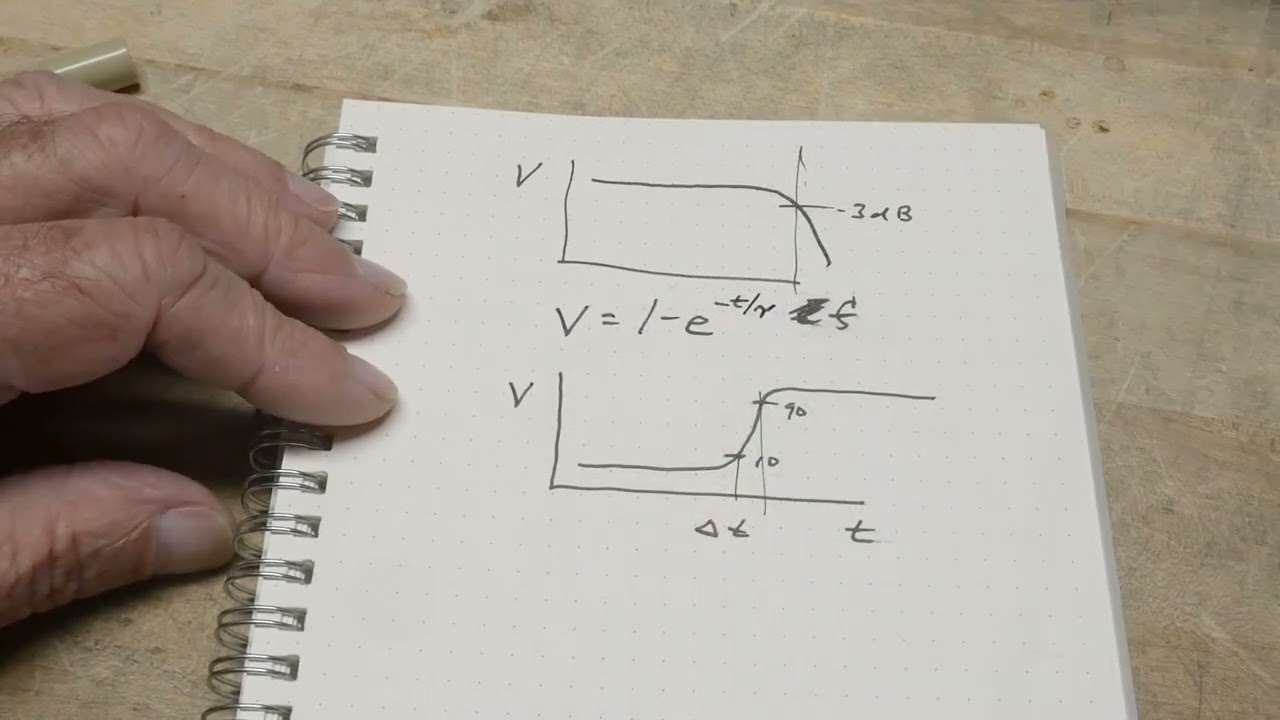 V
-3dB
V = 1-e^-t/τ f
V
90
10
Δt t